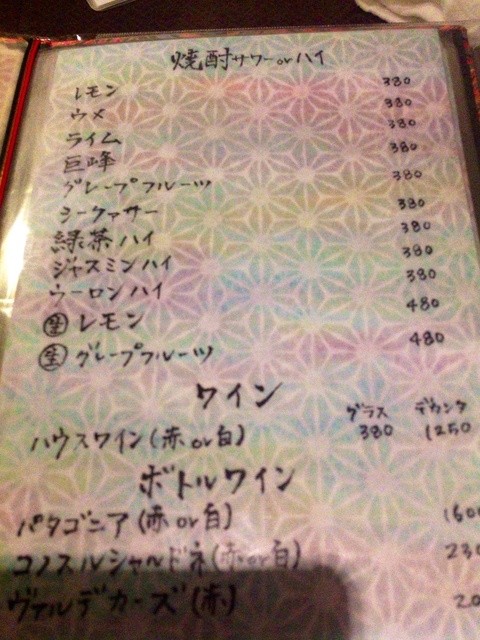 焼酎サワーorハイ
レモン 380
ウメ 380
ライム 380
巨峰 380
グレープフルーツ 380
シークァサー 380
緑茶ハイ 380
ジャスミンハイ 380
ウーロンハイ 380
生レモン 480
生グレープフルーツ 480
ワイン
グラス デカンタ
ハウスワイン(赤or白) 380 1250
ボトルワイン
パタゴニア(赤or白)
コノスルシャルドネ(赤or白)
ヴァルデカーズ(赤)